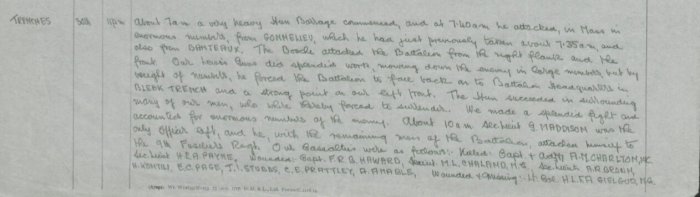 TRENCHES 30th 11pm About 7am a very heavy Hun Barrage commenced, and at 7.40am he attacked, in Mass in
enormous numbers, from GONNELIEU, which he had just previously taken about 7.35am, and
also from BANTEAUX. The Bosche attacked the Battalion from the right flank and the
front. Our Lewis Guns did splendid work, mowing down the enemy in large numbers, but by
weight of numbers, he forced the Battalion to face back as to Battalion Headquarters in
BLEAK TRENCH and a strong point on our left front. The Hun succeeded in surrounding
many of our men, who were thereby forced to surrender. We made a splendid fight and
accounted for enormous numbers of the enemy. About 10am Sec Lieut G MADDISON was the
only officer left, and he, with the remaining men of the Battalion, attached himself to
the 9th Fusiliers Regt. Our Casualties were as follows:- Killed: Capt & Adjt A.M. CHARLTON, MC.
Sec Lieut H.E.A. PAYNE, Wounded: Capt. F.R.G. HAWARD, Lieut M.L. CHALAND, MC Sec Lieuts A.R. BROWN,
H. E.C. PAGE, J.I. STUBBS, C.E. PRATTLEY, A. AMABLE, Wounded & Missing: Lt Col H.L.F.A. GIELGUD, MC.